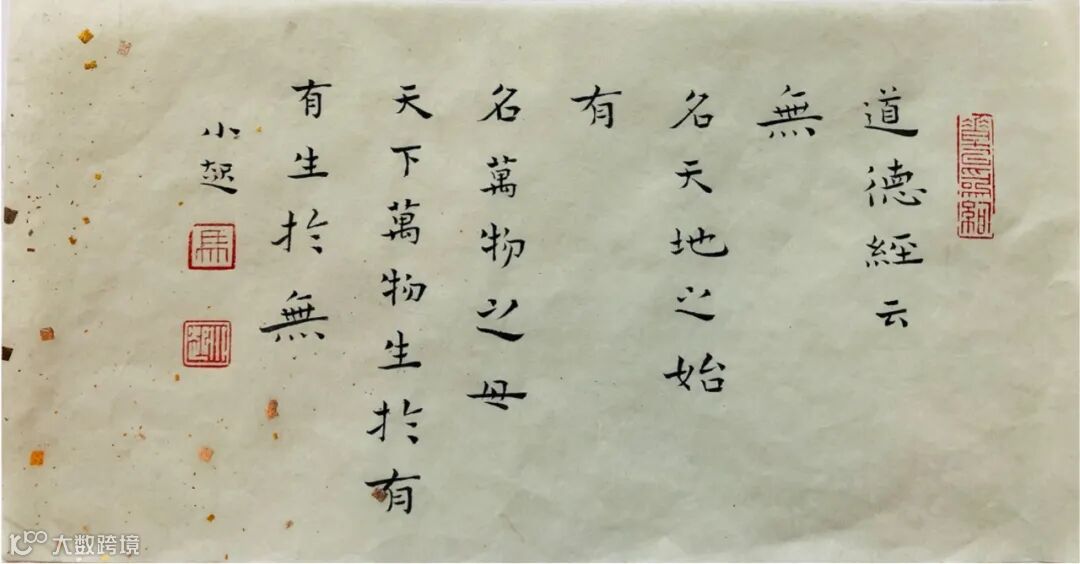 道德經云
無
名天地之始
有
名萬物之母
天下萬物生於有
有生於無
小超
馬
大数跨境